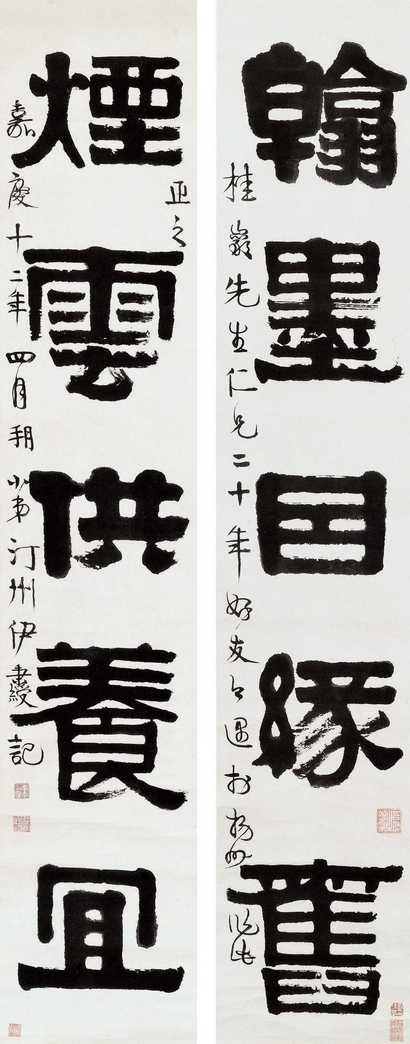 翰墨因緣舊
桂巖先生仁兄二十年好友今遇於揚州此
煙雲供養宜
正之
嘉慶十二年四月朔小弟汀州伊秉綬記